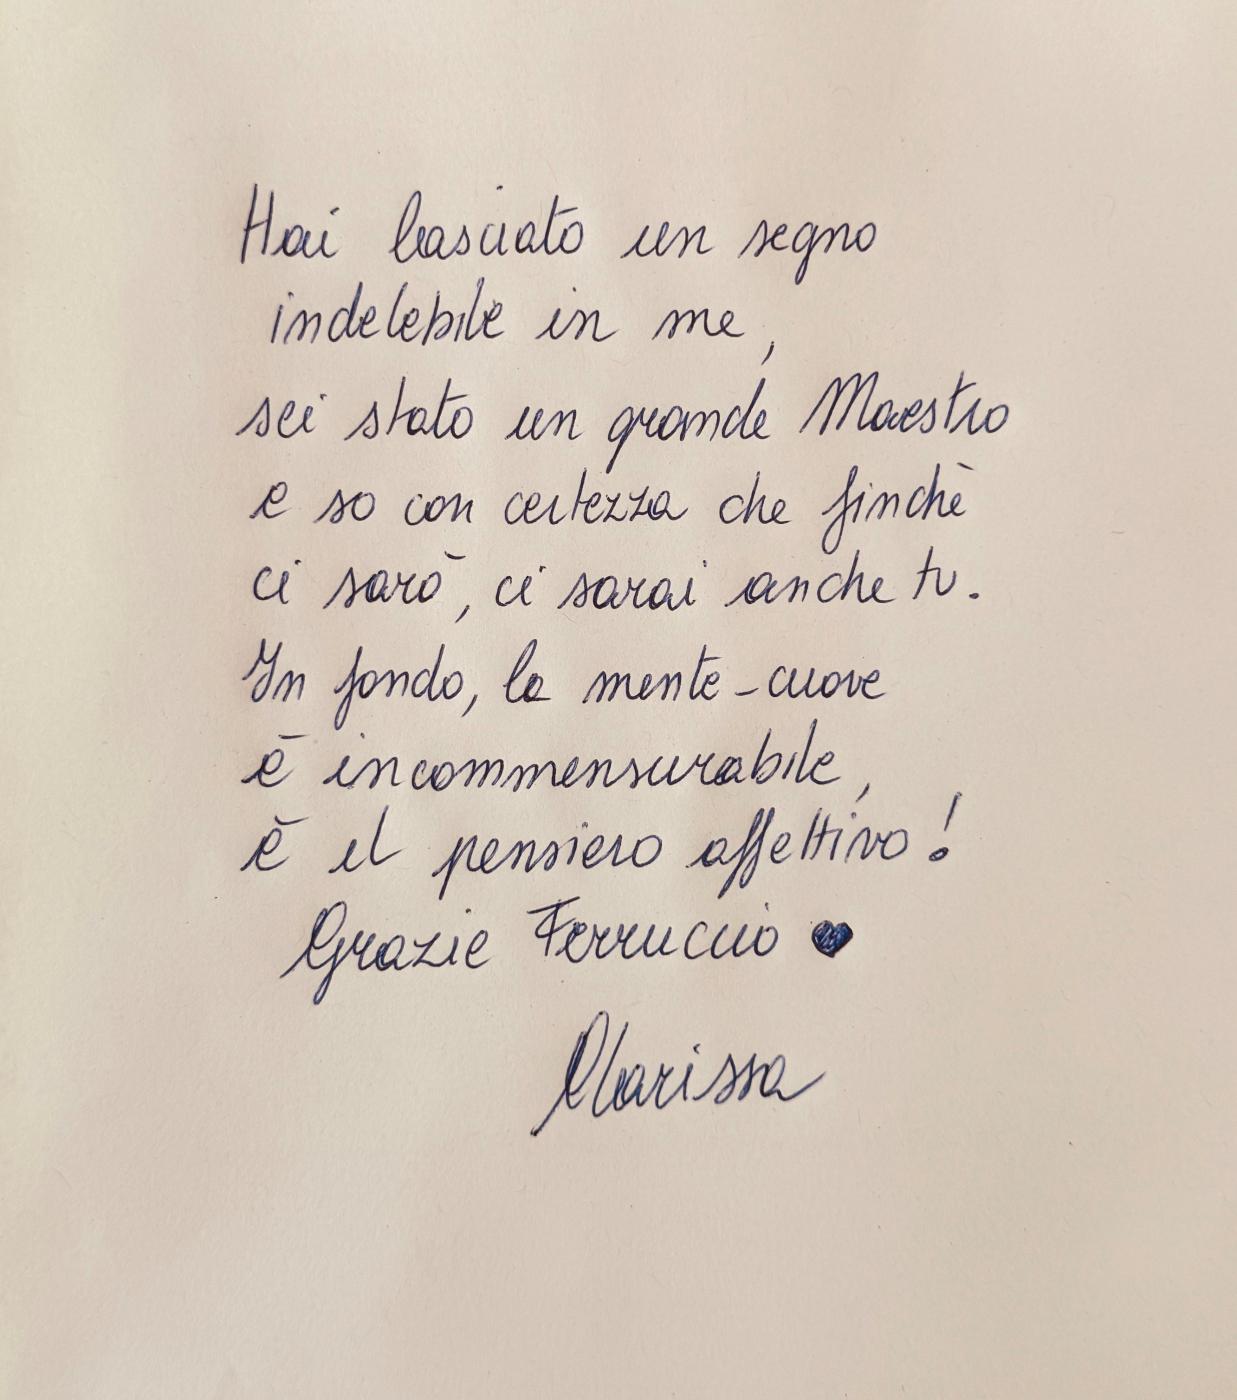 Hai lasciato un segno
indelebile in me,
sei stato un grande Maestro
e so con certezza che finchè
ci sarò, ci sarai anche tu.
In fondo, la mente-cuore
è incommensurabile,
è il pensiero affettivo!
Grazie Ferruccio ♥
Marissa